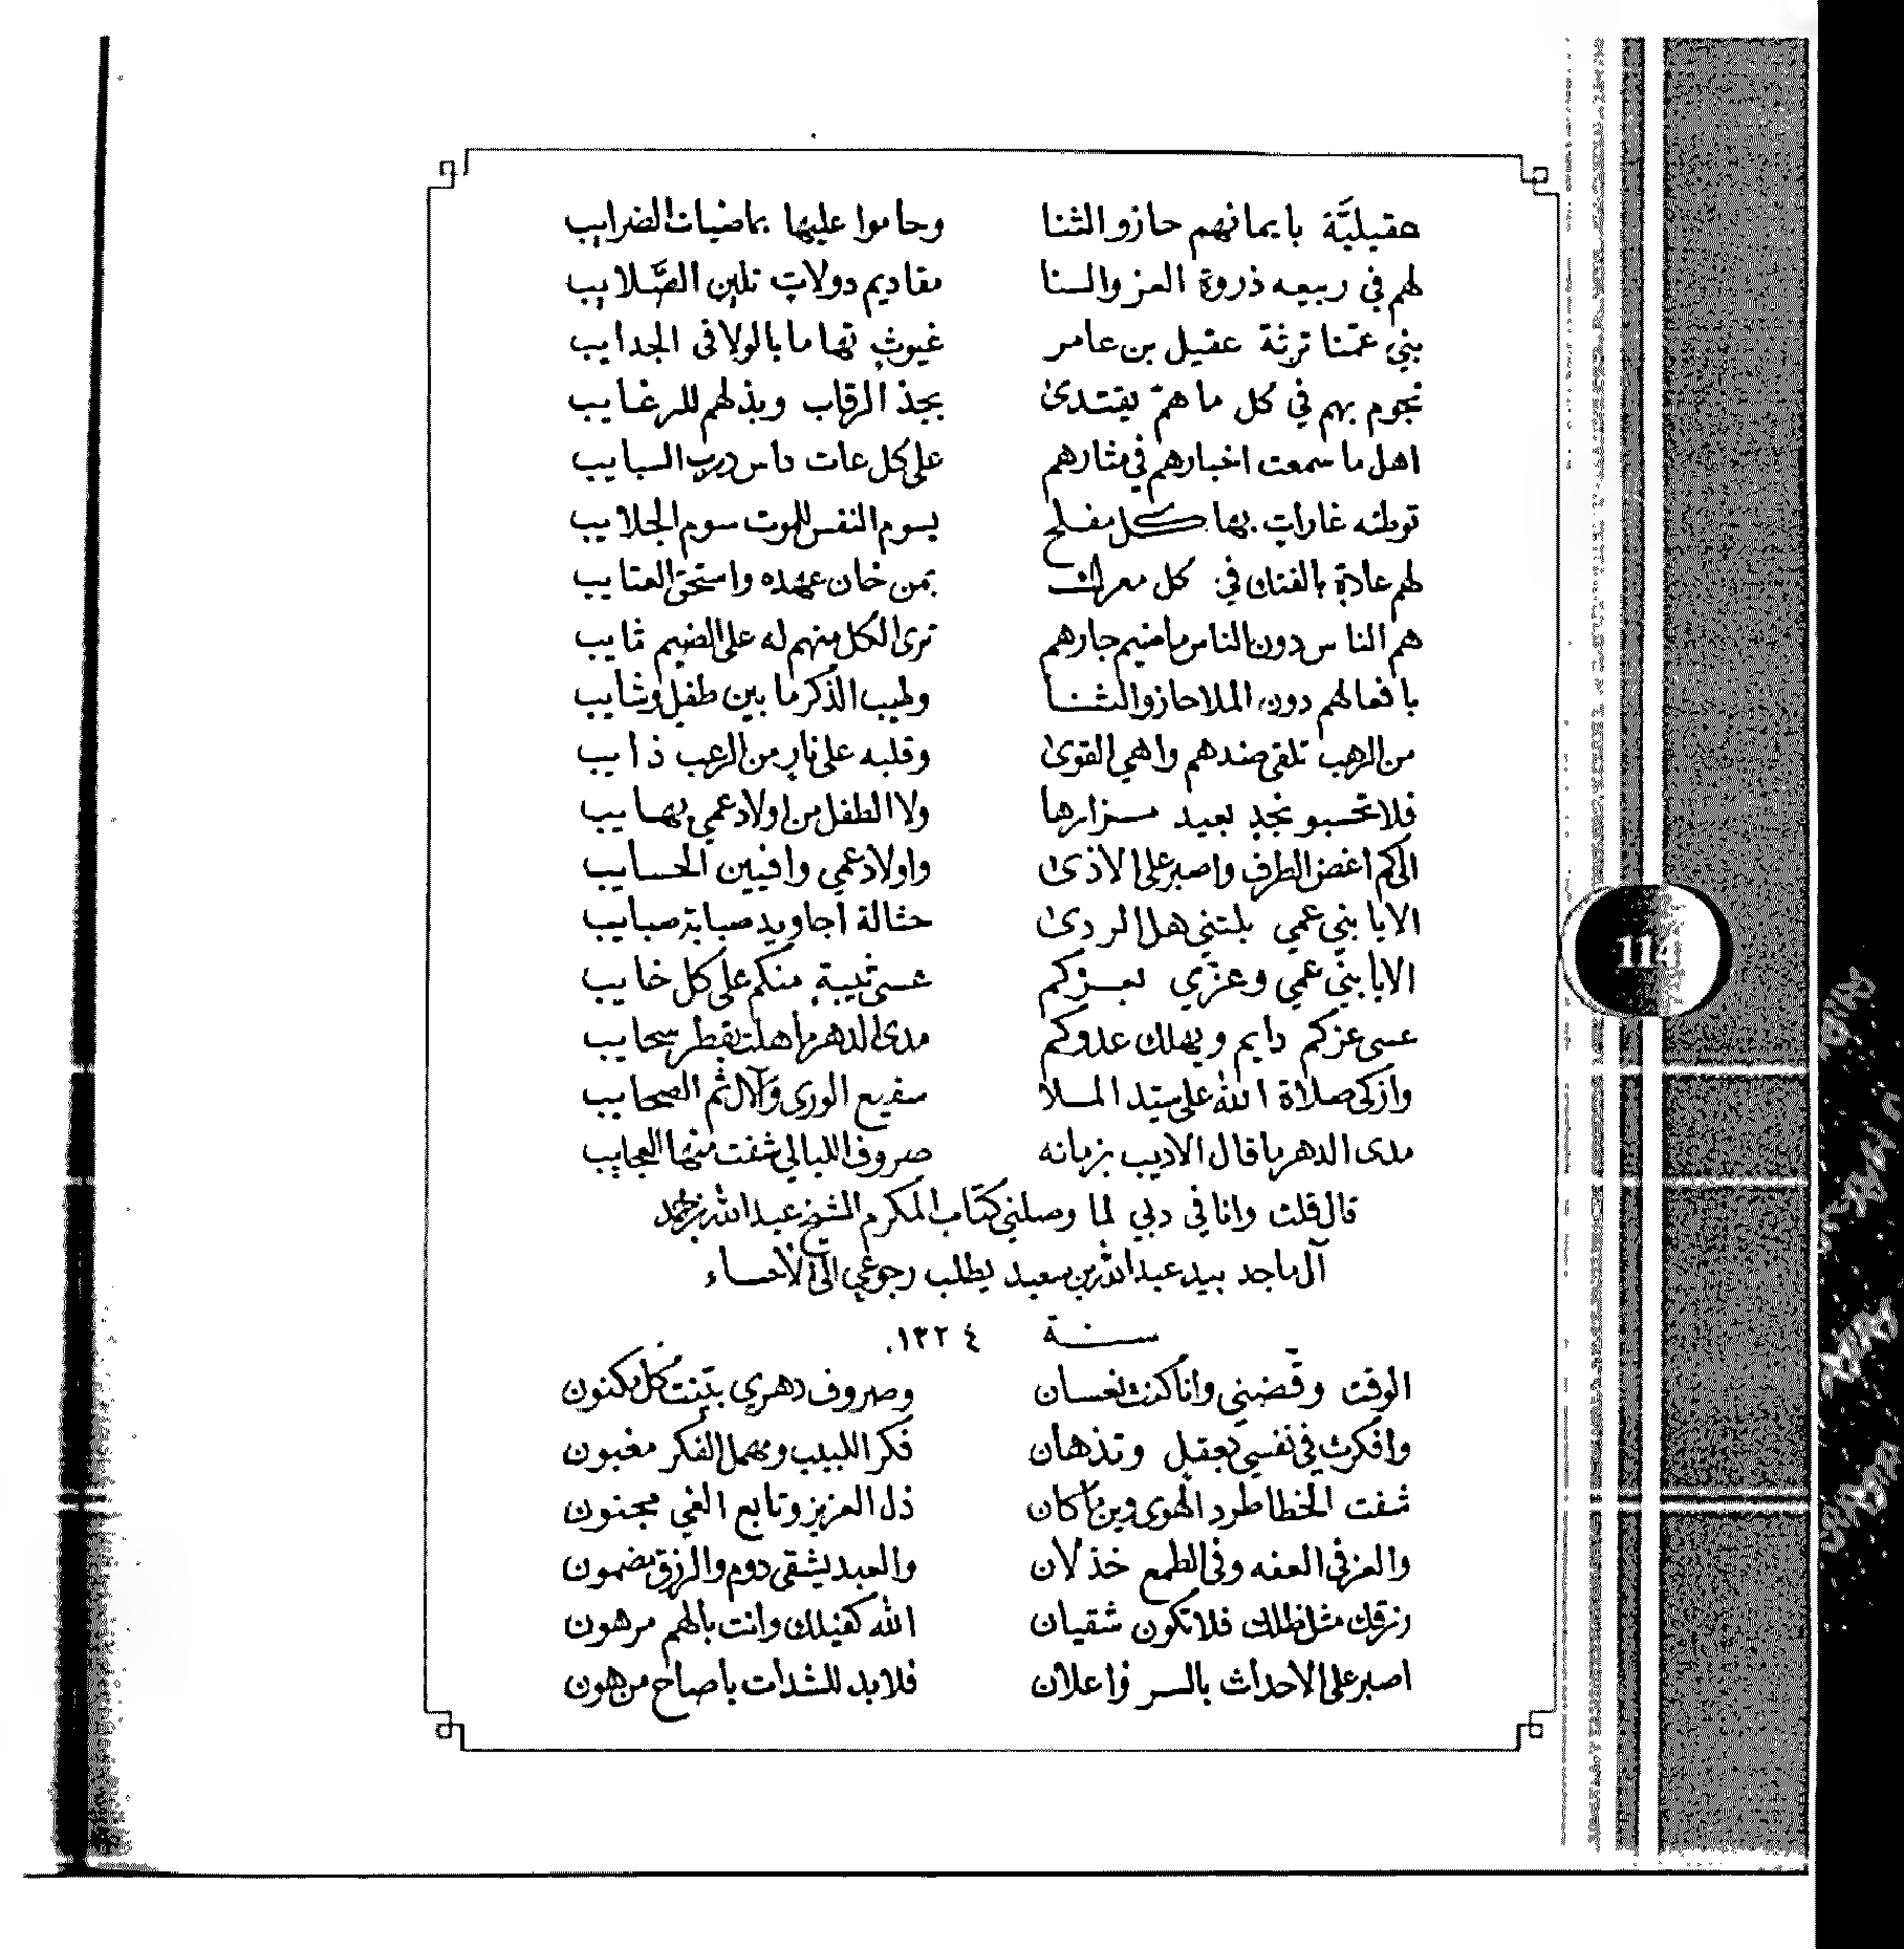 عقيليَّة بايمانهم حازو الثنا وحاموا عليها بماضيات الضرايب
لهم في ربيعه ذروة العز والسنا مقاديم دولات تلين الصَّلايب
بني عمّنا ترثة عقيل بن عامر غيوث تهاما بالولا في الجدايب
نجوم بهم في كل ما همّ يقتدى بجذ الرقاب وبذلهم للرغايب
اهل ما سمعت اخبارهم في مثارهم على كل عات داس درب السبايب
توطئه غارات بها كل مفلح يسوم النفس للموت سوم الجلايب
لهم عادة بالفتك في كل معرك بمن خان عهده واستحق العتايب
هم الناس دون الناس ما ضيم جارهم ترى الكل منهم له على الضيم ثايب
بافعالهم دون الملا حازوا الثنا وطيب الذكر ما بين طفل وشايب
من الرهب تلقى ضندهم واهي القوى وقلبه على نار من الرعب ذايب
فلا تحسبو نجد بعيد مزارها ولا الطفل من اولاد عمي بهايب
الى كم اغض الطرف واصبر على الاذى واولاد عمي وافيين الحسايب
الا يا بني عمي بلتني هل الردى حثالة اجاويد صبابة صبايب
الا يا بني عمي وعزّي بعزكم عسى ثيبة منكم على كل خايب
عسى عزكم دايم ويهلك عدوكم مدى الدهر ما هلت بقطر سحايب
وازكى صلاة الله على سيّد الملا سفيع الورى وآلال ثم الصحايب
مدى الدهر ما قال الاديب بزمانه صروف الليالي شفت منها العجايب
قال قلت وانا في دبي لما وصلني كتاب المكرم الشيخ عبدالله بن احمد
آل ماجد بيد عبدالله بن سعيد يطلب رجوعي الى الاحساء
سنة ١٣٢٤.
الوقت وقّضني وانا كنت نعسان وصروف دهري بيّنت كل مكنون
وافكرت في نفسي بعقل وتذهان فكر اللبيب ومهمل الفكر مغبون
شفت الخطا طرد الهوى وين ما كان ذل العزيز وتابع الغي مجنون
والعز في العفه وفي الطمع خذلان والعبد يشقى دوم والرزق مضمون
رزقك مثل ظلك فلا تكون شقيان الله كفيلك وانت بالهم مرهون
اصبر على الاحداث بالسر واعلان فلا بد للشدات يا صاح من هون